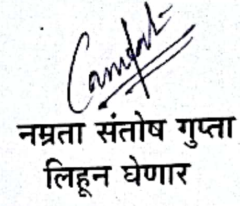 नम्रता संतोष गुप्ता
लिहून घेणार